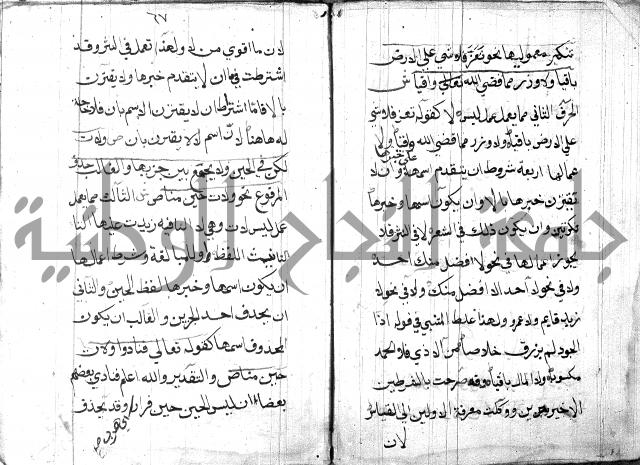 تنكير معموليها نحو تعز فلا شيء على الارض
باقيا ولا وزر مما قضى الله تعالى واقيا ش
الحرف الثاني مما يعمل عمل ليس لا كقوله تعز فلا شيء
على الارض باقيا ولا وزر مما قضى الله واقيا ولا
عمالها اربعة شروط ان يتقدم اسمها وان لا
على خبرها
يقترن خبرها بالا وان يكون اسمها وخبرها
نكرتين وان يكون ذلك في الشعر لا في النثر فلا
يجوز اعمالها في نحو لا افضل منك احد
ولا في نحو لا احد الا افضل منك ولا في نحو لا
زيد قايم ولا عمرو ولهذا غلط المتنبي في قوله اذا
الجود لم يرزق خلاصا من الاذى فلا الحمد
مكسوبا ولا المال باقيا وقد صرحت بالشرطين
الاخيرين ووكلت معرفة الاولين الى القياس
لان
٦٧
لان ما اقوى من لا ولهذا تعمل في النثر وقد
اشترطت في ما ان لا يتقدم خبرها ولا يقترن
بالا فاما اشتراط ان لا يقترن الاسم بان فلا حاجة
له هاهنا لان اسم لا لا يقترن بان ص ولات
لكن في الحين ولا يجمع بين جزيها والغالب حذف
المرفوع نحو ولات حين مناص ش الثالث مما يعمل
عمل ليس لات وهي لا النافية زيدت عليها التا
لتانيث اللفظ او للمبالغة وشرط اعمالها
ان يكون اسمها وخبرها لفظ الحين والثاني
ان يحذف احد الجزين والغالب ان يكون
المحذوف اسمها كقوله تعالى فنادوا ولات
حين مناص والتقدير والله اعلم فنادى بعضهم
بعضا ان ليس الحين حين فرار وقد يحذف
جامعة النجاح الوطنية